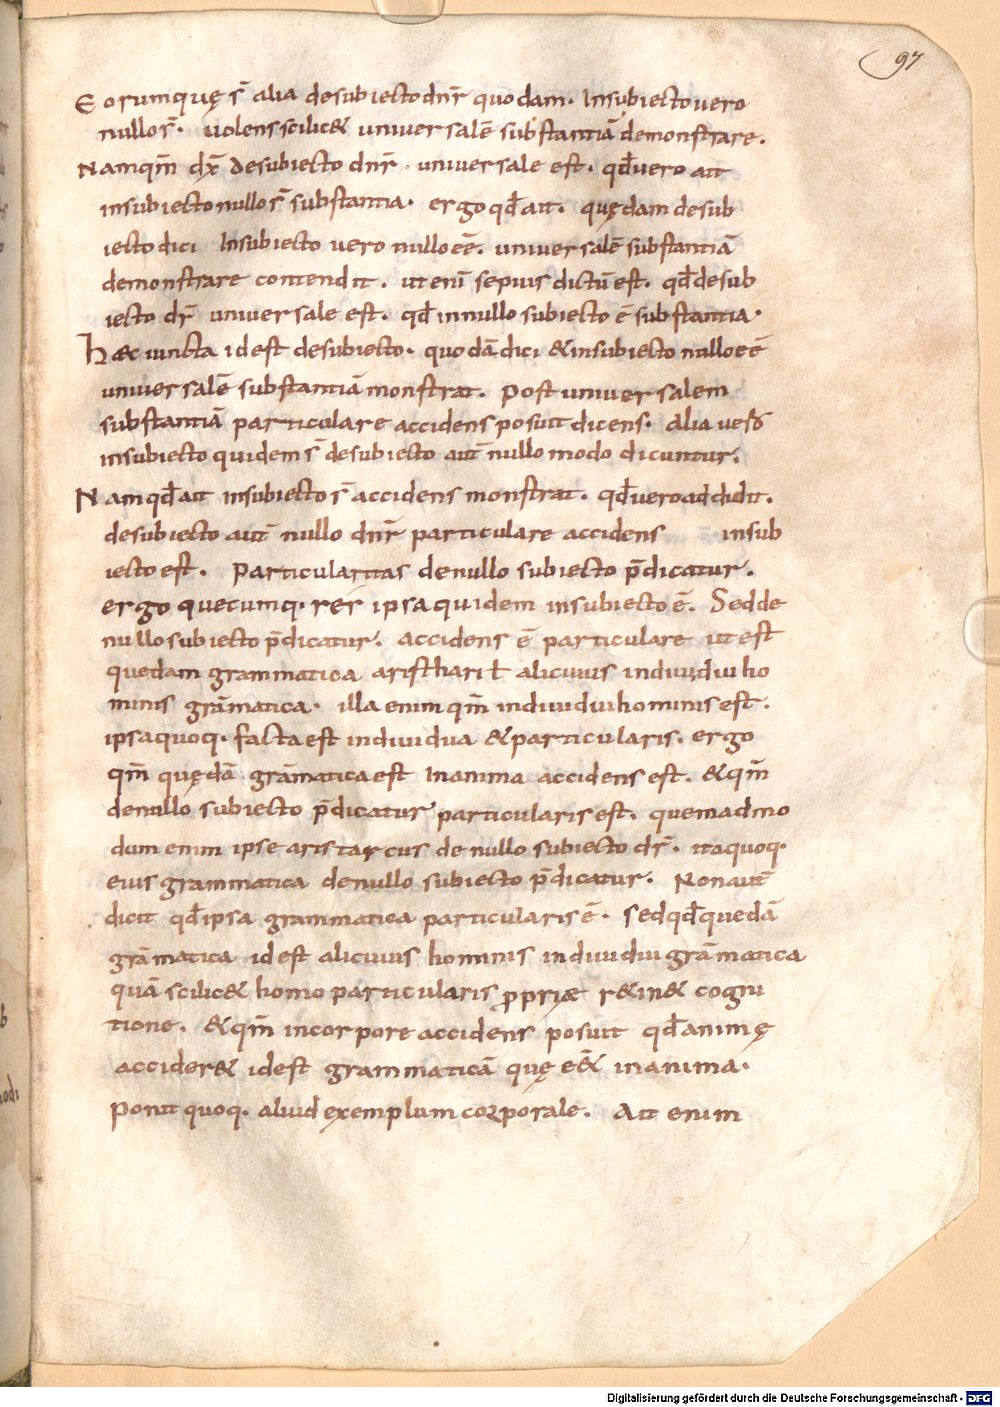 97
Eorumquę s̄ alia desubiecto dn̄r quodam. Insubiecto uero
nullo s̄. uolens scilic& uniuersalē substantiā demonstrare.
Namqm̄ dx̄ desubiecto dn̄r. uniuersale est. qd̄ uero ait
insubiecto nullo s̄ substantia. ergo qd̄ ait. quędam desub
iecto dici Insubiecto uero nullo eē. uniuersalē substantiā
demonstrare contendit. ut enī sepius dictū est. qd̄ desub
iecto dr̄ uniuersale est. qd̄ innullo subiecto ē substantia.
Hæc iuncta id est desubiecto. quodā dici & insubiecto nullo eē
uniuersalē substantiā monstrat. Post uniuersalem
substantiā particulare accidens posuit dicens. Alia uero
insubiecto quidem s̄ desubiecto aut̄ nullo modo dicuntur.
Nam qd̄ ait insubiecto s̄ accidens monstrat. qd̄ uero addidit.
desubiecto aut̄ nullo dn̄r particulare accidens insub
iecto est. Particularitas denullo subiecto p̄dicatur.
ergo quecumq. rer ipsa quidem insubiecto ē. Sed de
nullo subiecto p̄dicatur. accidens ē particulare ut est
quedam grammatica aristhari ł alicuius indiuidui ho
minis grāmatica. illa enim qm̄ indiuidui hominis est.
ipsa quoq. facta est indiuidua & particularis. ergo
qm̄ quędā grāmatica est Inanima accidens est. & qm̄
denullo subiecto p̄dicatur particularis est. quemadmo
dum enim ipse aristarcus de nullo subiecto dr̄. ita quoq.
eius grammatica denullo subiecto p̄dicatur. Non aut̄
dicit qd̄ ipsa grammatica particularis ē. sed qd̄ quedā
grāmatica id est alicuius hominis indiuidui grāmatica
quā scilic& homo particularis ꝓpriæ r&in& cogni
tione. & qm̄ incorpore accidens posuit qd̄ animę
accider& id est grammaticā quę eē& inanima.
Ponit quoq. aliud exemplum corporale. Ait enim
Digitalisierung gefördert durch die Deutsche Forschungsgemeinschaft - DFG